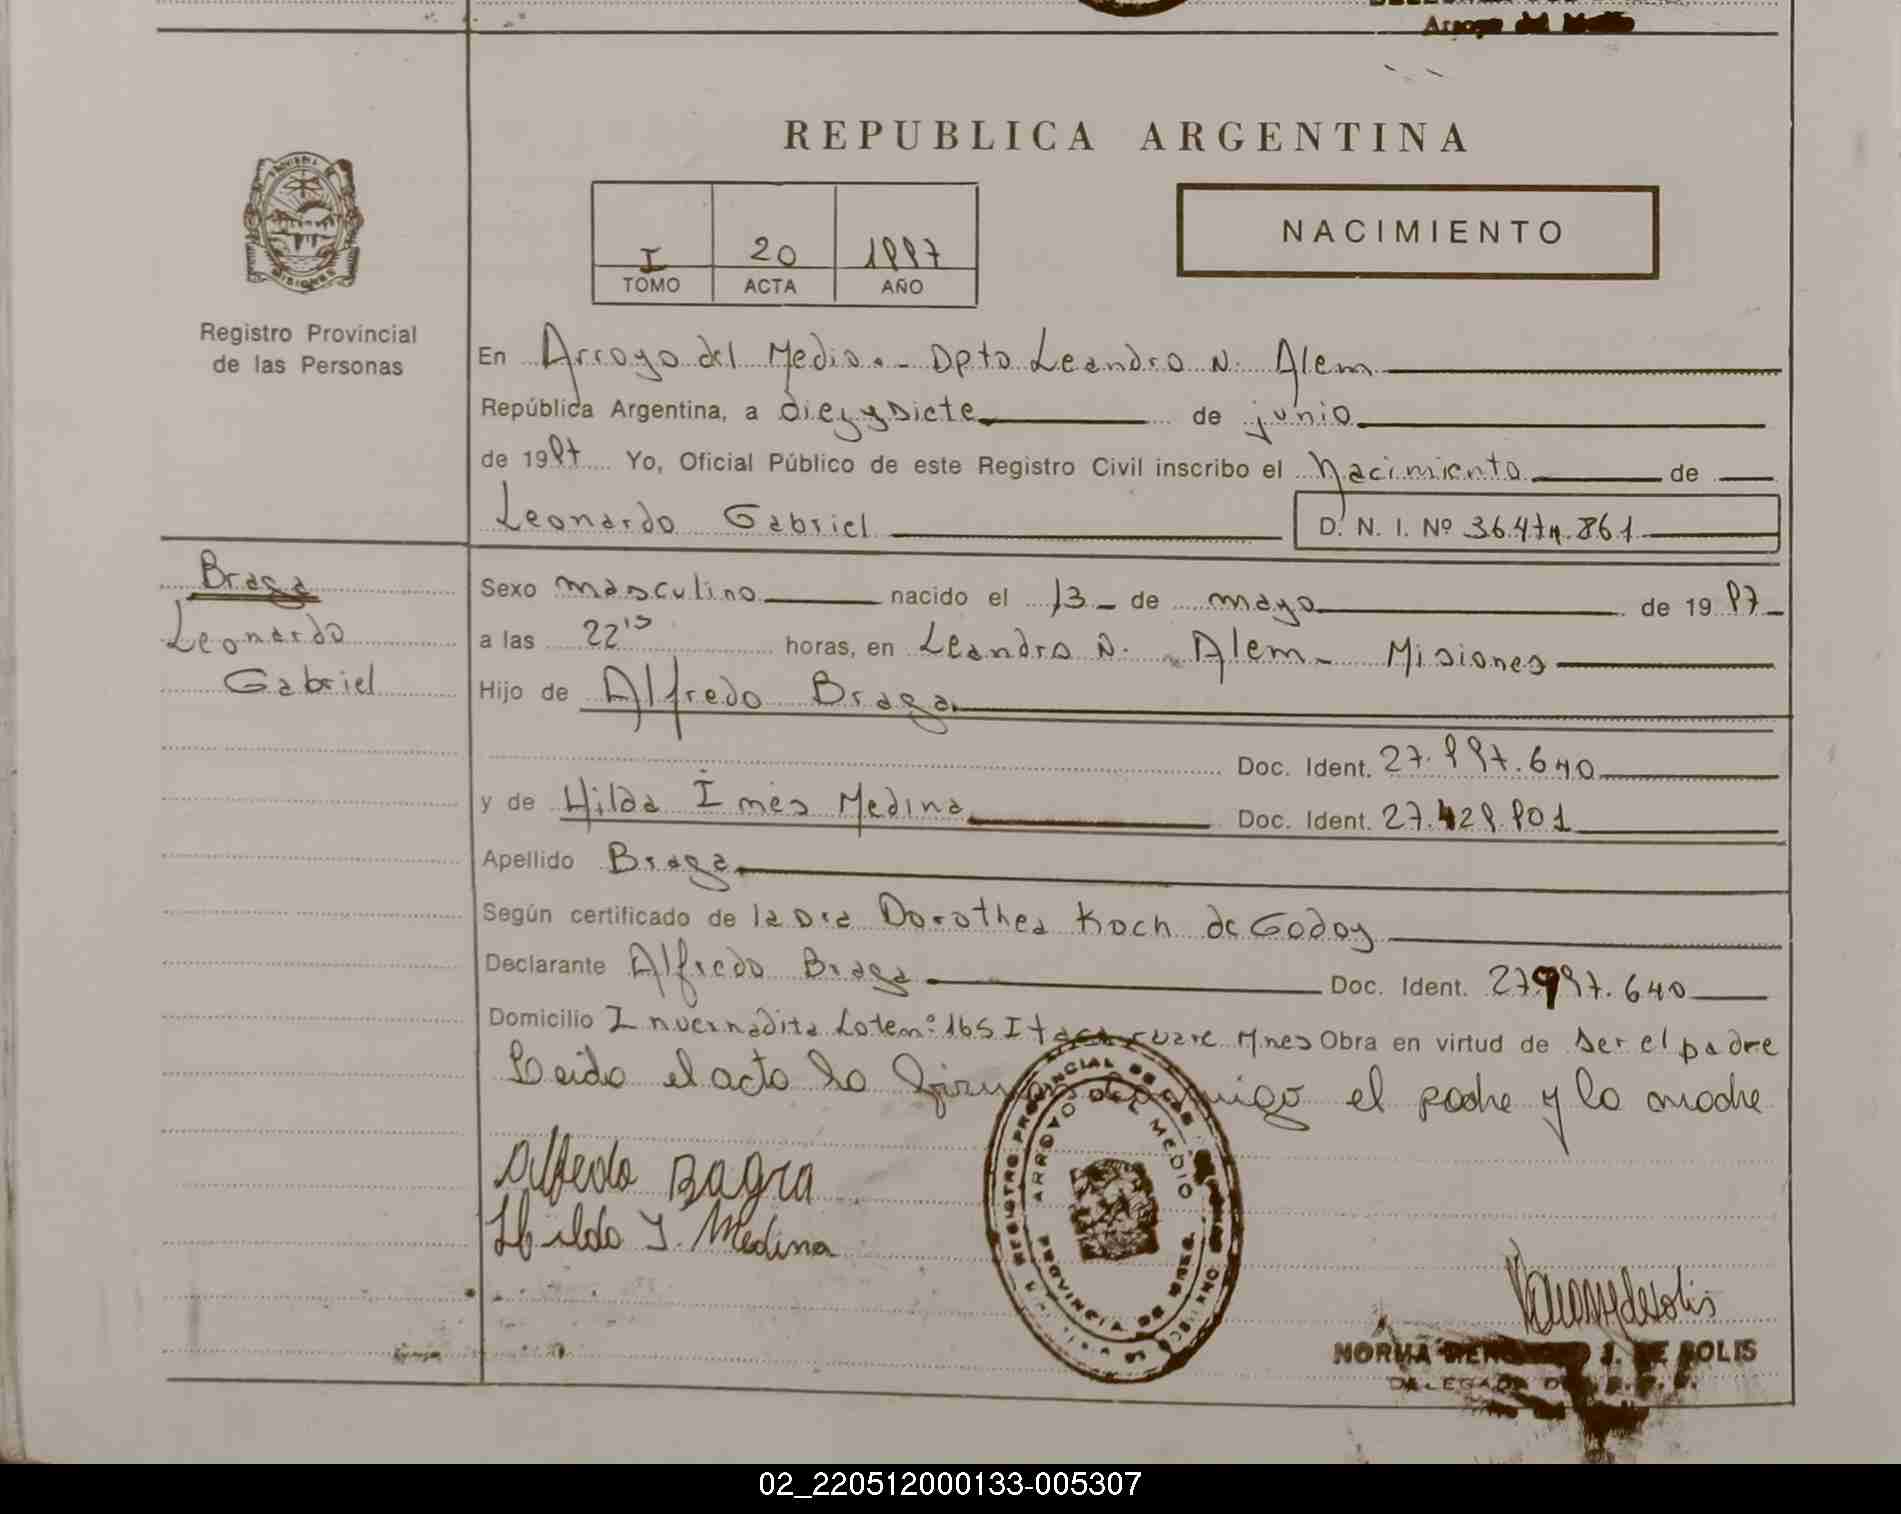 Arroyo del Medio
REPUBLICA ARGENTINA
NACIMIENTO
I 20 1997
TOMO ACTA AÑO
Registro Provincial
de las Personas
En Arroyo del Medio.- Dpto Leandro N. Alem
República Argentina, a diez y siete de junio
de 1997 Yo, Oficial Público de este Registro Civil inscribo el Nacimiento de
Leonardo Gabriel D. N. I. Nº
Braga
Leonardo
Gabriel
Sexo masculino nacido el 13 - de mayo de 1997
a las 22 15 horas, en Leandro N. Alem - Misiones
Hijo de Alfredo Braga
Doc. Ident. 27.997.640
y de Hilda Inés Medina Doc. Ident.
Apellido Braga
Según certificado de la Dra Dorothea Koch de Godoy
Declarante Alfredo Braga Doc. Ident. 27997.640
Domicilio Invernadita Lote nº 165 Itacaruare Mnes Obra en virtud de ser el padre
Leido el acto lo el padre y la madre
Alfedo Bagra
Hilda I. Medina
REGISTRO PROVINCIAL DE LAS
ARROYO DEL MEDIO
NORMA J. DE SOLIS
DELEGADA
02_220512000133-005307